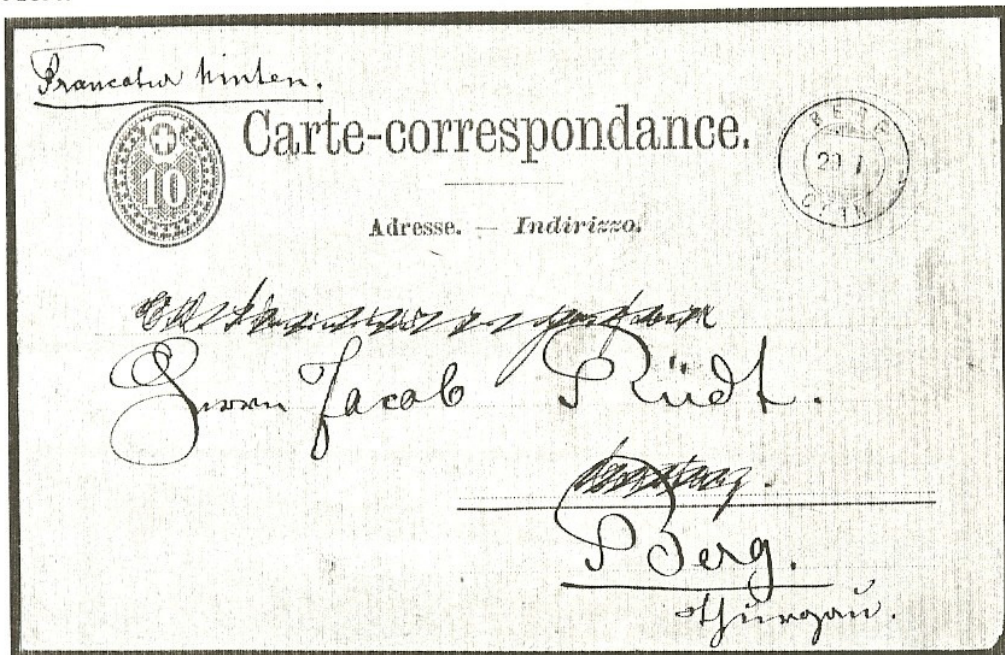 Francatur hinten.
10
Carte-correspondance.
Adresse. — Indirizzo.
Herrn Jacob Rüdt.
Berg.
Thurgau.